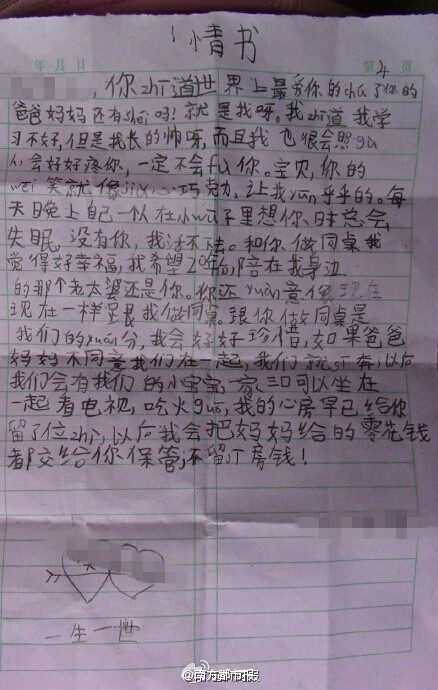 情书
年 月 日 第 4 页
，你zhī道世界上最爱你的chú了你的
爸爸妈妈还有sheí吗！就是我呀。我zhī道我学
习不好，但是我长的帅呀，而且我也很会照gù
人，会好好疼你，一定不会fù你。宝贝，你的
wēi笑就像 巧克力，让我yūn乎乎的。每
天晚上自己一 在 wō子里想你，时 总会
失眠，没有你，我活不 。和你做同桌我
觉得好幸福，我希望20年 ，陪在我身边
的那个老太婆还是你。你还yuàn意像现在
现在一样足艮我做同桌。跟你做同桌是
我们的yuán分，我会好好珍惜，如果爸爸
妈妈不同意我们在一起，我们就 奔，以后
我们会有我们的小宝宝，一家三口可以坐在
一起看电视，吃火guō，我的心房早已给你
留了位zhì，以后我会把妈妈给的零花钱
都交给你保管，不留 房钱！
一生一世
@南方都市报